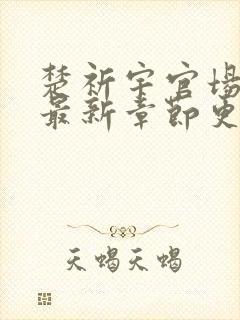 楚祈宇官场
最新章节更
天蝎天蝎